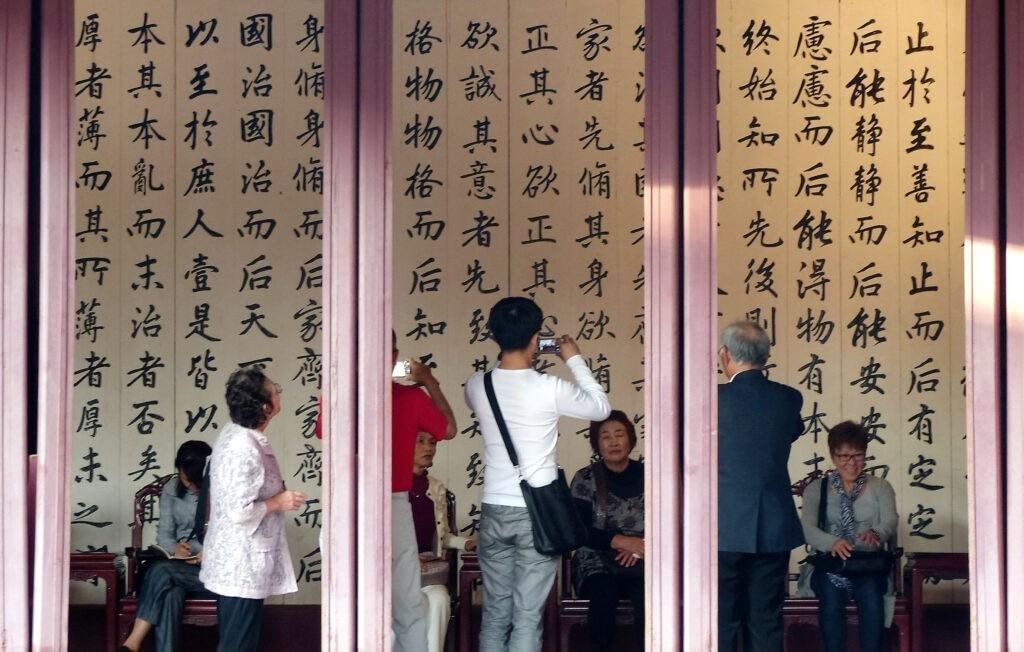 止於至善知止而后有定定
后能静静而后能安安而
慮慮而后能得物有本
终始知所先後則
家者先脩其身欲脩其
正其心欲正其心
欲誠其意者先致其知致知
格物物格而后知
身脩身脩而后家齊家齊而后
國治國治而后天
以至於庶人壹是皆以
本其本亂而末治者否矣其
厚者薄而其所薄者厚未之